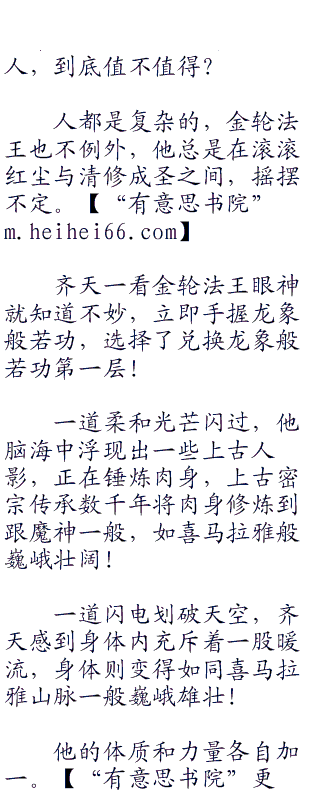 人，到底值不值得？
人都是复杂的，金轮法
王也不例外，他总是在滚滚
红尘与清修成圣之间，摇摆
不定。【“有意思书院”
m.heihei66.com】
齐天一看金轮法王眼神
就知道不妙，立即手握龙象
般若功，选择了兑换龙象般
若功第一层！
一道柔和光芒闪过，他
脑海中浮现出一些上古人
影，正在锤炼肉身，上古密
宗传承数千年将肉身修炼到
跟魔神一般，如喜马拉雅般
巍峨壮阔！
一道闪电划破天空，齐
天感到身体内充斥着一股暖
流，身体则变得如同喜马拉
雅山脉一般巍峨雄壮！
他的体质和力量各自加
一。【“有意思书院”更